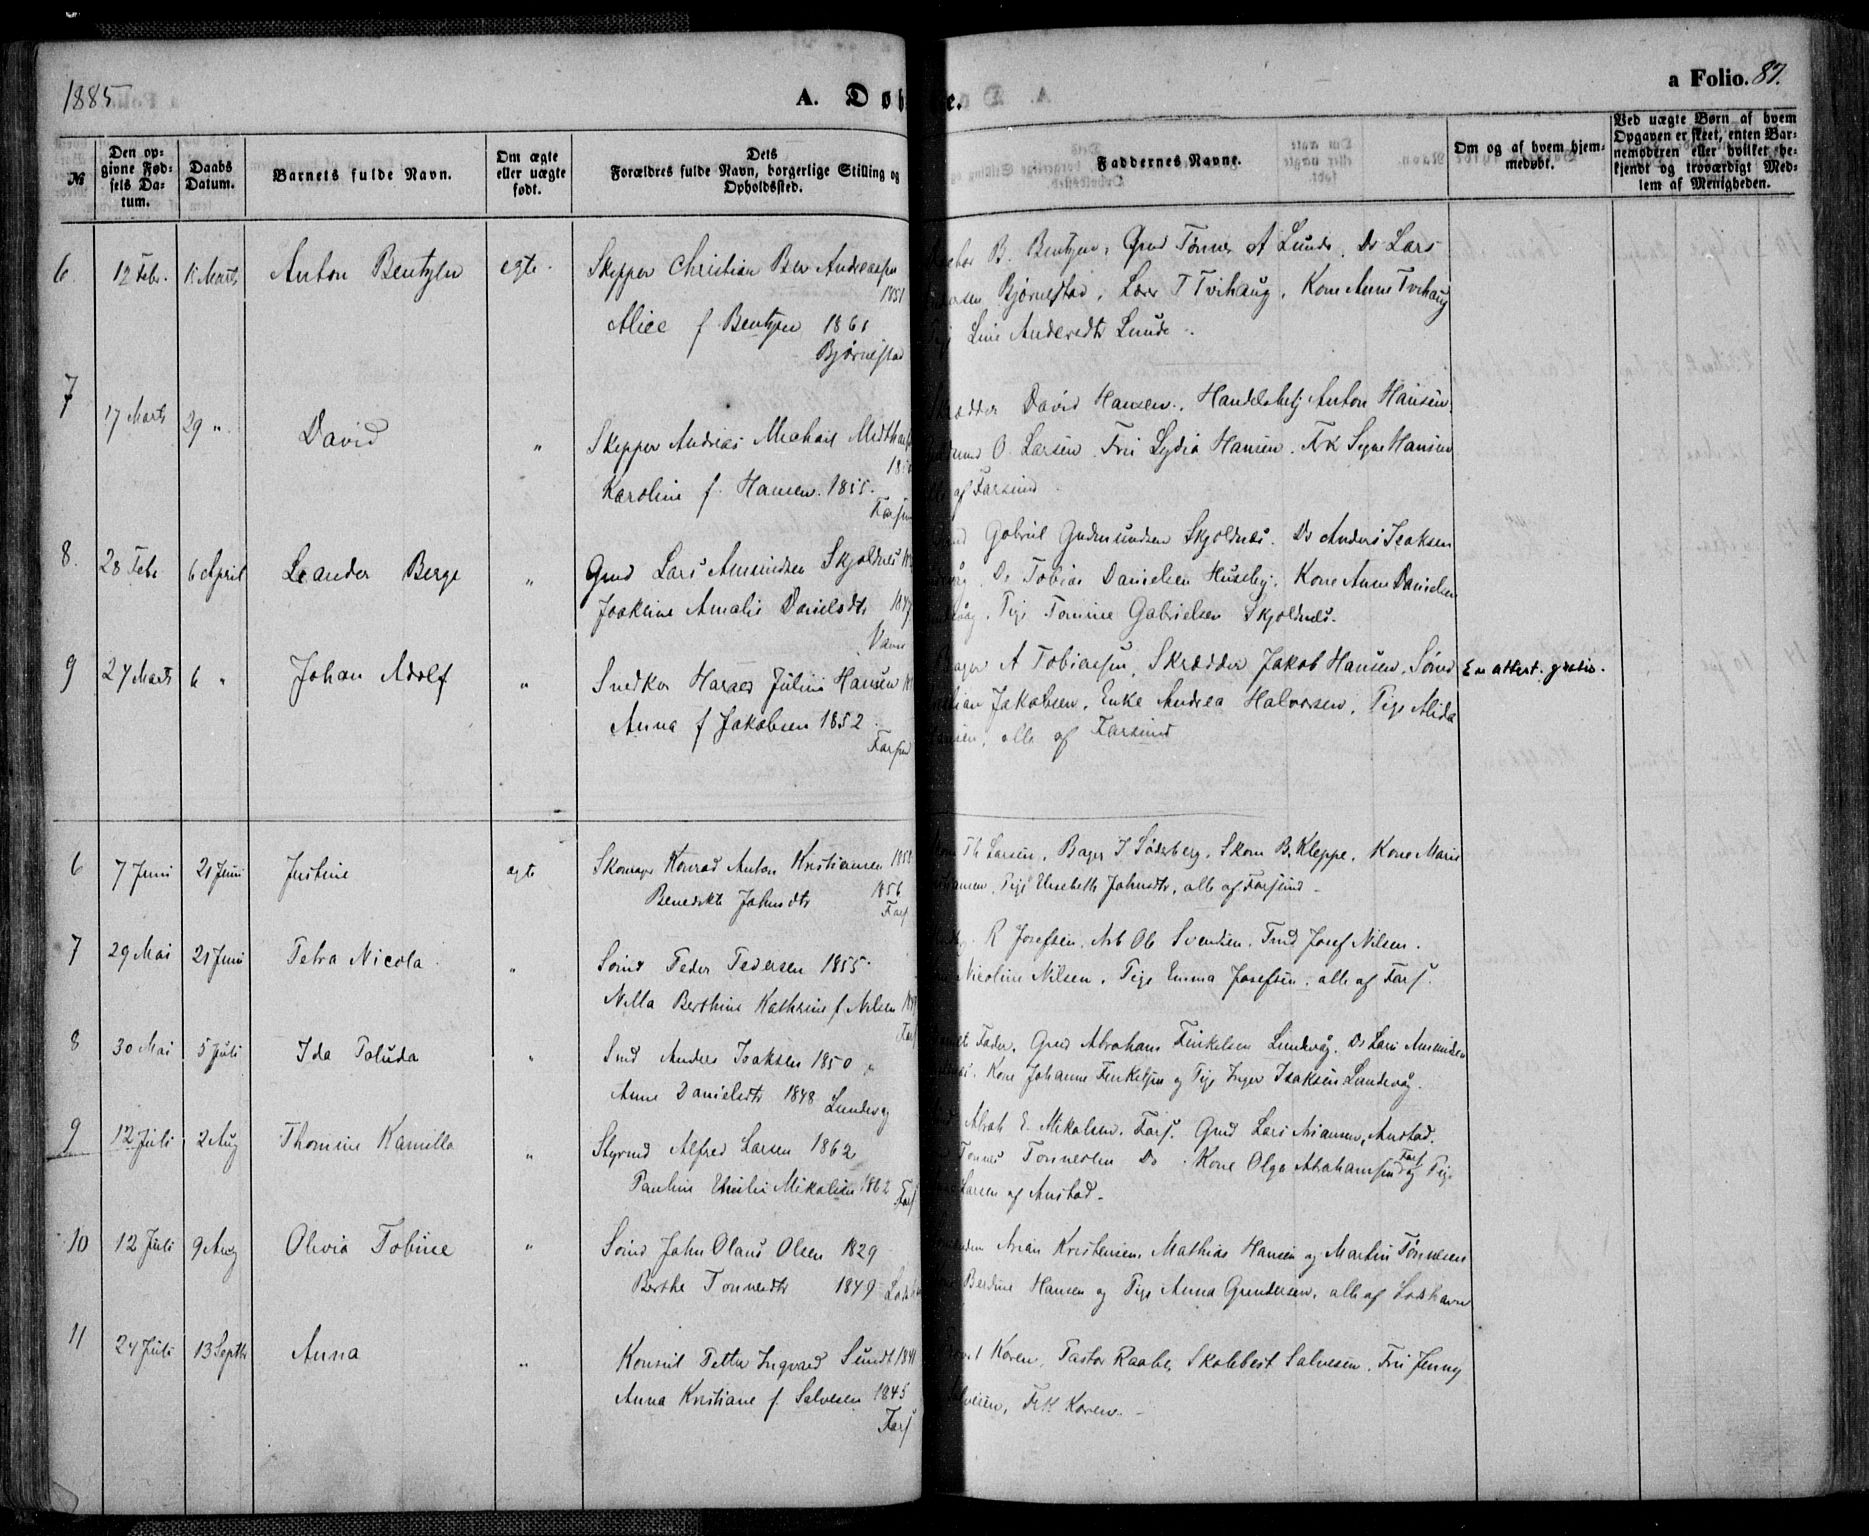 1885
A. Døb
e.
a Folio. 87.
№
Den opgivne Fødsels Datum.
Daabs Datum.
Barnets fulde Navn.
Om ægte eller uægte født.
Dets Forældres fulde Navn, borgerlige Stilling og Opholdssted.
Faddernes Navne.
Om og af hvem hjemmedøbt.
Ved uægte Børn af hvem Opgaven er skeet, enten Barnemoderen eller hvilket bekjendt og troværdigt Medlem af Menigheden.
6. 12 Febr. 15 Marts Anton Bentzen egte. Skipper Christian Ber Andreassen 1851
Alice f Bentzen 1861
Bjørnestad
B. Bentzen, Grd Tønnes A Lunde, Do Lars
Bjørnestad, Lærer T Tvihaug, Kone Anne Tvihaug
Line Andersdtr Lunde.
7 17 Marts 29 " David " Skipper Andreas Michael
Karoline f. Hansen. 1855.
David Hansen, Handelsbetj Anton Hansen.
O. Larsen. Fru Lydia Hansen. Frk Signe Hansen
af Farsund.
8. 28 Febr 6 April Leander Berge " Gmd Lars Amundsen Skjoldnes
Joakine Amalie Danielsdtr 1847
Gabriel Gudmundsen Skjoldnes. Do Anders Isaksen
Do Tobias Danielsen Huseby, Kone Anne Danielsen
Pige Tomine Gabrielsen Skjoldnes.
9 27 Marts 6 " Johan Adolf " Snedker Harald Julius Hansen
Anna f Jakobsen 1852.
Farsund
A Tobiassen, Skrædder Jakob Hansen, Sømd
Jakobsen, Enke Andrea Halvorsen, Pige Alida
alle af Farsund
En attest. gratis.
6 7 Juni 21 Juni Justine ægte Skomager Konrad Anton Kristiansen
Benedikte Johnsdtr 1856
Fars
Th Larsen, Bager J Søderberg, Skom B. Kleppe, Kone Marie
Pige Elisabeth Johnsdtr, alle af Farsund
7 29 Mai 21 Juni Petra Nicola " Sømd Peder Pedersen 1855
Nilla Berthine Kathrine f Nilsen
Fars
R Josefsen, Arb Ole Svendsen, Tmd Josef Nilsen.
Nicoline Nilsen, Pige Emma Josefsen, alle af Fars.
8 30 Mai 5 Juli Ida Paluda " Smd Anders Isaksen 1850
Anne Danielsdtr 1848 Lundevåg
Fader, Gmd Abraham Finkelsen Lundevåg. Do Lars Amundsen
Kone Johanne Finkelsen og Pige Inger Isaksen Lundevåg.
9 12 Juli 2 Aug Thomine Kamilla " Styrmd Alfred Larsen 1862
Pauline Emilie Mikalsen 1862 Fars
Abrah E. Mikalsen. Fars. Gmd Lars Ariansen, Austad.
Tønnes Tønnessen Do. Kone Olga Abrahamsen Fars og Pige
Larsen af Austad
10 12 Juli 9 Aug Olivia Tobine " Sømd John Olaus Olsen 1829
Berthe Tønnesdtr 1849
Arian Kristensen, Mathias Hansen og Martin Tønnesen
Berdine Hansen og Pige Anna Gundersen, alle af Loshavn
11 24 Juli 13 Septbr Anna " Konsul Petter Ingvard Sundt 1841
Anna Kristiane f. Salvesen 1845
Fars
Koren, Pastor Raabe, Skolebest Salvesen, Fru Jenny
Frk Koren.